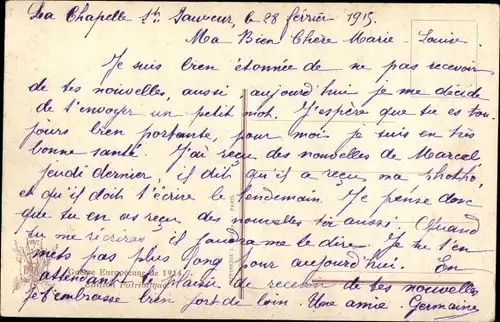 La Chapelle St. Sauveur, le 28 février 1915.
Ma Bien Chère Marie-Louise
Je suis bien étonnée de ne pas recevoir
de tes nouvelles aussi aujourd'hui je me décide
de t'envoyr un petit mot. J'espère que tu es tou-
jours bien portante, pour moi je suis en très
bonne santé. J'ai reçu des nouvelles de Marcel,
jeudi dernier, il dit qu'il a reçu ma photho,
et qu'il doit t'écrire le lendemain. Je pense donc
que tu en as reçu des nouvelles toi aussi. Quand
tu me récriras il faudra me le dire. Je ne t'en
mets pas plus long pour aujourd'hui. En
Guerre Européenne de 1914
attendant le plaisir de recevoir de tes nouvelles
Edition Patriotique
je t'embrasse bien fort de loin. Une amie. Germaine
PARIS.